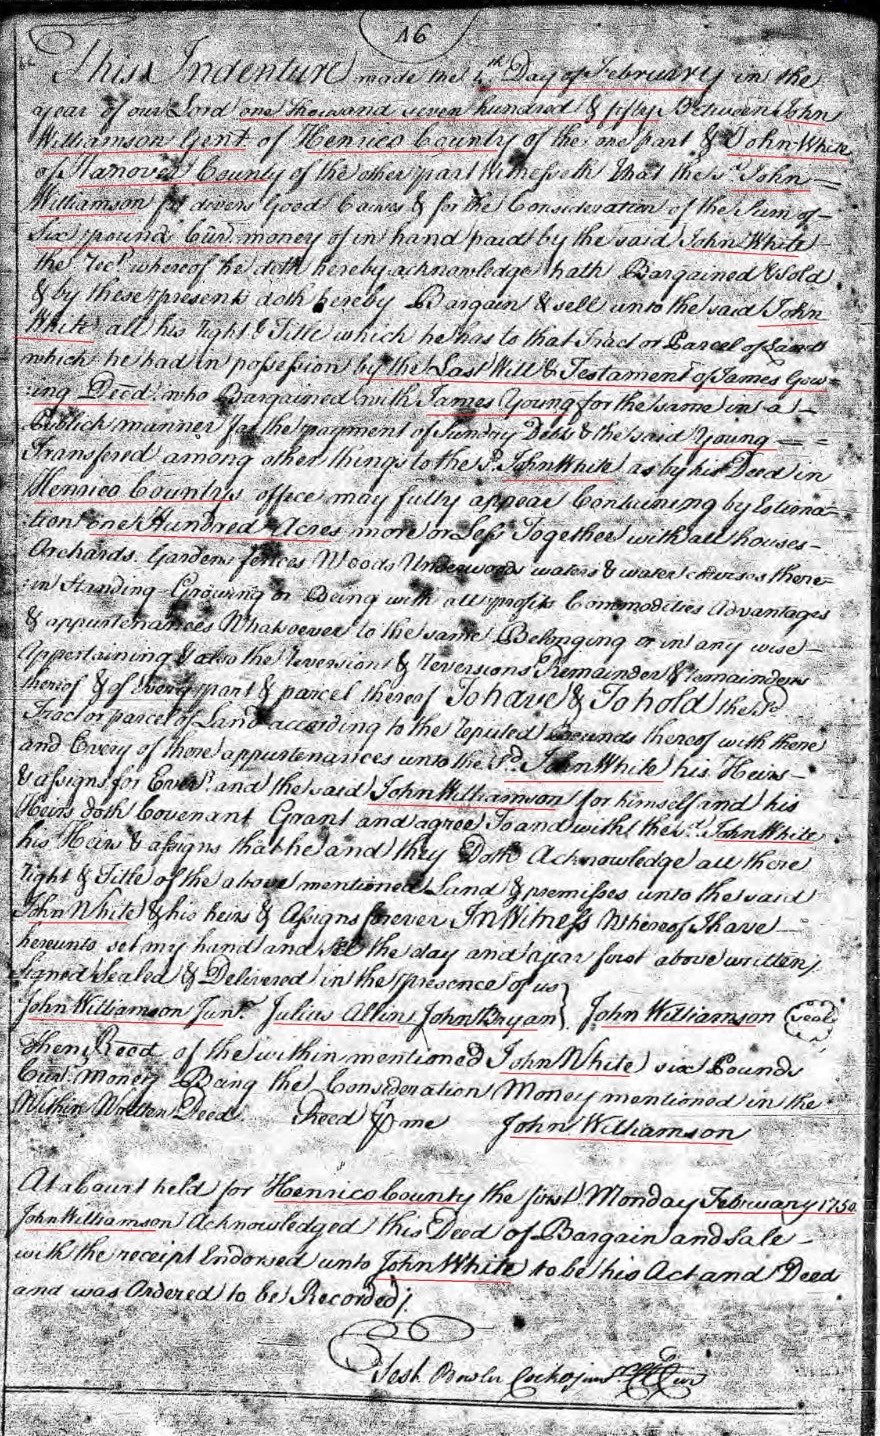 16
This Indenture made the 4th Day of February in the
year of our Lord one thousand seven hundred & fifty Between John
Williamson Gent of Henrico County of the one part & John White
of Hanover County of the other part Witnesseth that the sd John
Williamson for divers Good Causes & for the Consideration of the Sum of
Six pounds Curr money of in hand paid by the said John White
the Rect whereof he doth hereby acknowledge hath Bargained & Sold
& by these presents doth hereby Bargain & sell unto the said John
White all his right & Title which he has to that Tract or Parcel of Land
which he had in possession by the Last Will & Testament of James Gow=
=ing Decd who Bargained with James Young for the same in a
Publick manner for the payment of Sundry Debts & the said Young
Transfered among other things to the sd John White as by his Deed in
Henrico County's office may fully appear Containing by Estima=
=tion one Hundred Acres more or Less Together with all houses
Orchards Gardens fences Woods Underwoods waters & water courses there=
=in Standing Growing or Being with all profits Commodities Advantages
& appurtenances Whatsoever to the same Belonging or in any wise
Appertaining & also the Reversion & Reversions Remainder & remainders
thereof & of Every part & parcel thereof To have & To hold the sd
Tract or parcel of Land according to the reputed Bounds thereof with there
and Every of there appurtenances unto the sd John White his Heirs
& assigns for Ever and the said John Williamson for himself and his
Heirs doth Covenant Grant and agree To and with the sd John White
his Heirs & assigns that he and they Doth Acknowledge all there
right & Title of the above mentioned Land & premisses unto the said
John White & his heirs & Asigns forever In Witness Whereof I have
hereunto set my hand and the day and year first above written
Signed Sealed & Delivered in the presence of us
John Williamson Junr Julius Allin John Bryan } John Williamson seal
Then Reced of the within mentioned John White six Pounds
Curr Money Being the Consideration Money mentioned in the
Within Written Deed Reced p me John Williamson
At a Court held for Henrico County the first Monday February 1750
John Williamson Acknowledged this Deed of Bargain and Sale
with the receipt Endorsed unto John White to be his Act and Deed
and was Ordered to be Recorded
Test Bowler Cocke